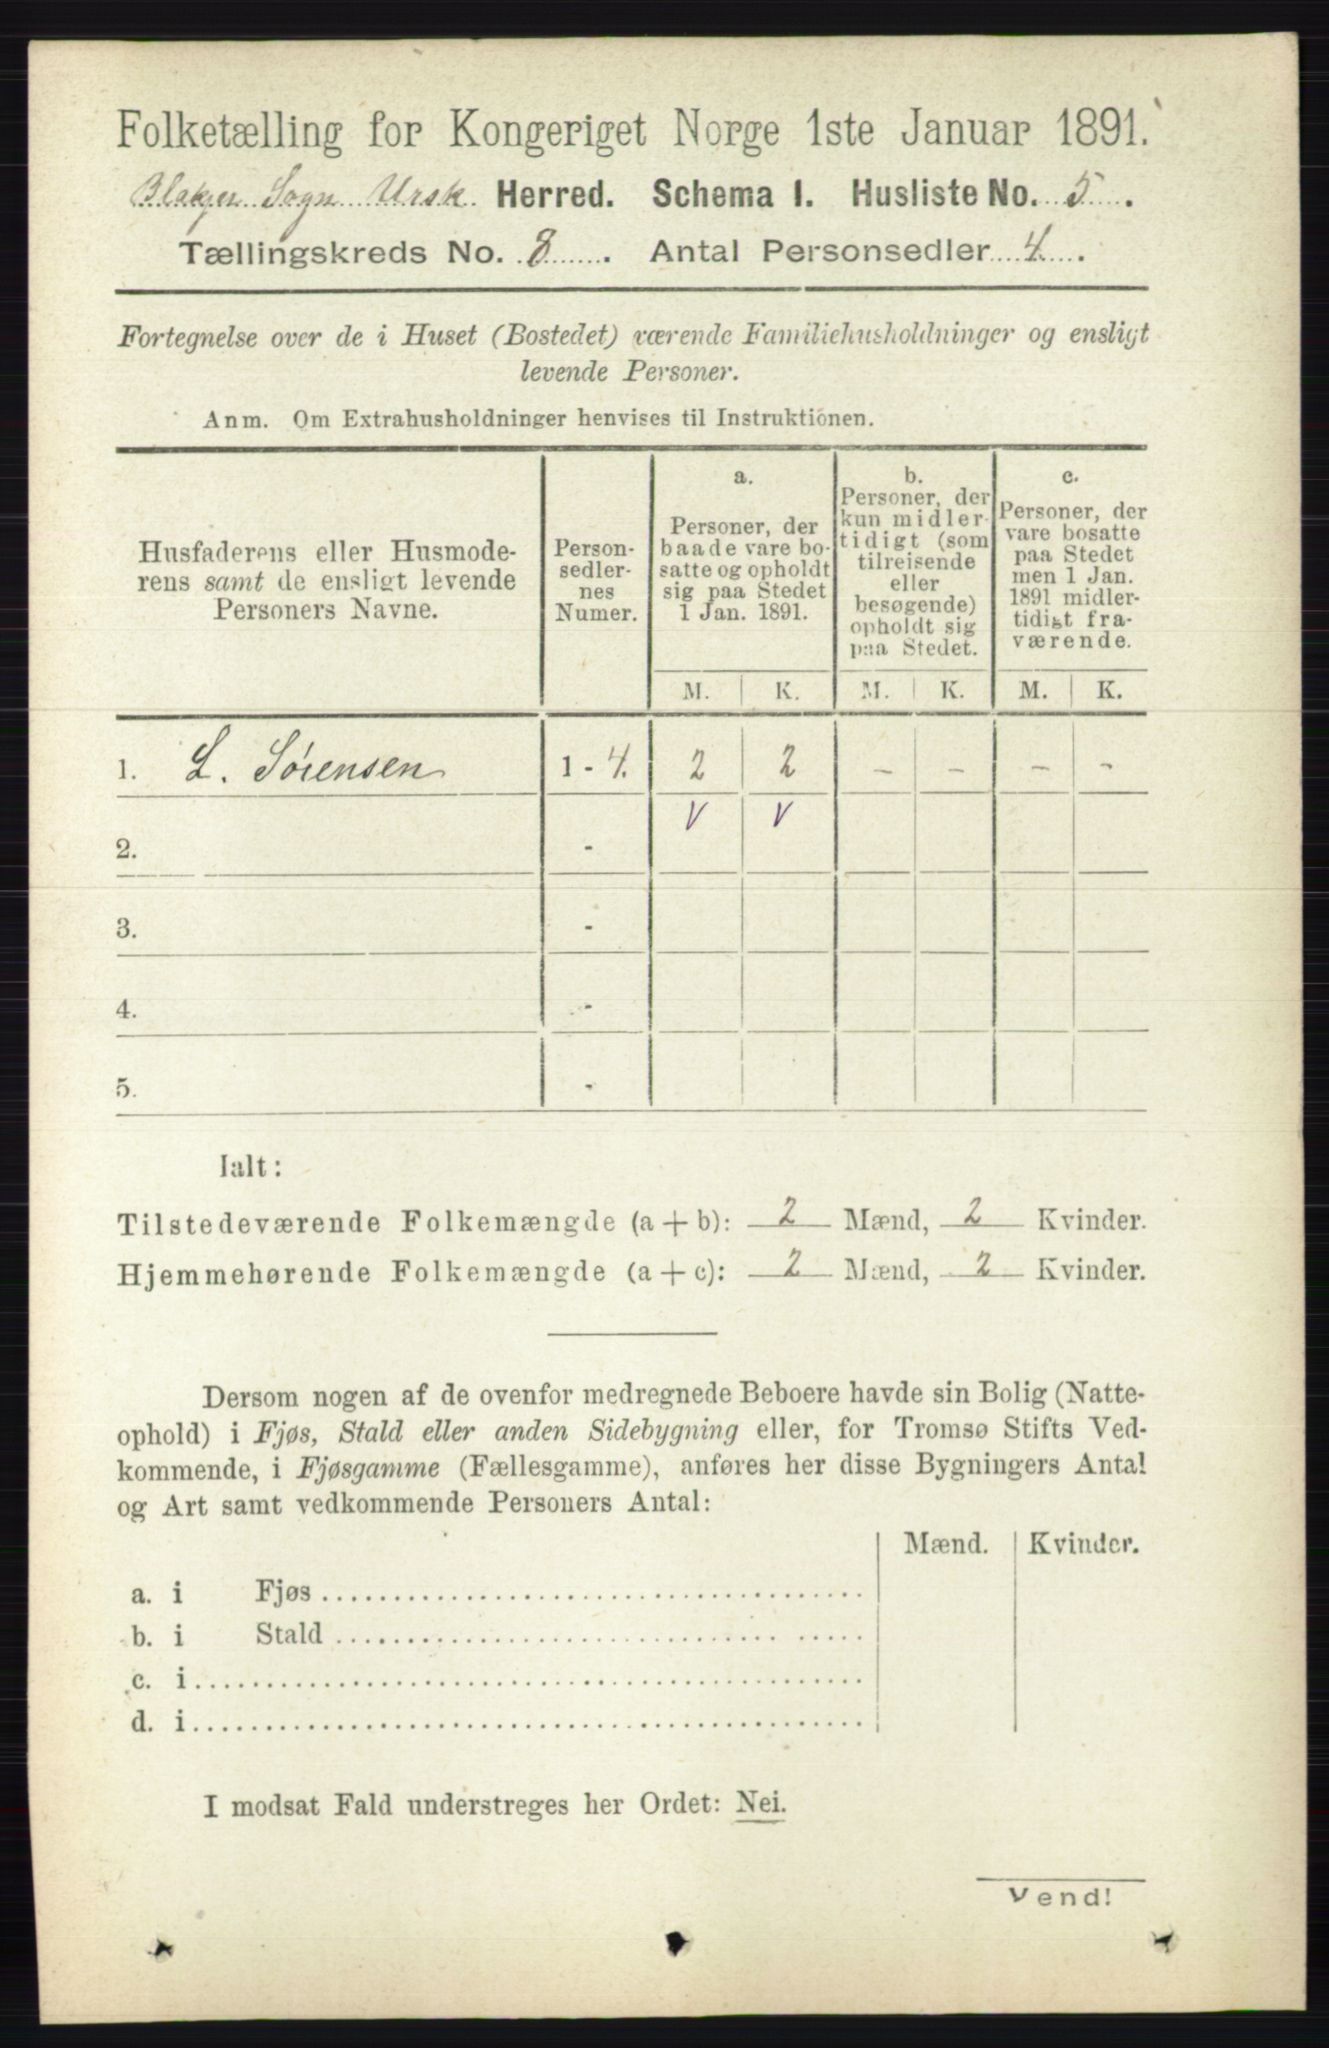 Folketælling for Kongeriget Norge 1ste Januar 1891.
Blakjer Sogn Ursk Herred. Schema I. Husliste No. 5.
Tællingskreds No. 8. Antal Personsedler 4.
Fortegnelse over de i Huset (Bostedet) værende Familiehusholdninger og ensligt
levende Personer.
Anm. Om Extrahusholdninger henvises til Instruktionen.
Husfaderens eller Husmode-
rens samt de ensligt levende
Personers Navne.
Person-
sedler-
nes
Numer.
a.
Personer, der
baade vare bo-
satte og opholdt
sig paa Stedet
1 Jan. 1891.
b.
Personer, der
kun midler-
tidigt (som
tilreisende
eller
besøgende)
opholdt sig
paa Stedet.
c.
Personer, der
vare bosatte
paa Stedet
men 1 Jan.
1891 midler-
tidigt fra-
værende.
M. K. M. K. M. K.
1. L. Sørensen 1 - 4. 2 2 - - - -
V V
2. -
3. -
4. -
5. -
Ialt:
Tilstedeværende Folkemængde (a + b): 2 Mænd, 2 Kvinder.
Hjemmehørende Folkemængde (a + c): 2 Mænd, 2 Kvinder.
Dersom nogen af de ovenfor medregnede Beboere havde sin Bolig (Natte-
ophold) i Fjøs, Stald eller anden Sidebygning eller, for Tromsø Stifts Ved-
kommende, i Fjøsgamme (Fællesgamme), anføres her disse Bygningers Antal
og Art samt vedkommende Personers Antal:
Mænd. Kvinder.
a. i Fjøs
b. i Stald
c. i
d. i
I modsat Fald understreges her Ordet: Nei.
Vend!